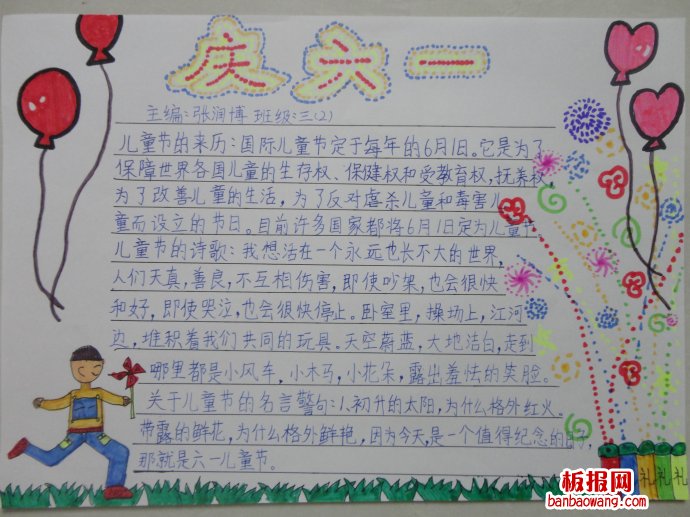 庆六一
主编:张润博 班级:三(2)
儿童节的来历:国际儿童节定于每年的6月1日。它是为了
保障世界各国儿童的生存权、保健权和受教育权,抚养权,
为了改善儿童的生活,为了反对虐杀儿童和毒害儿
童而设立的节日。目前许多国家都将6月1日定为儿童节。
儿童节的诗歌:我想活在一个永远也长不大的世界,
人们天真,善良,不互相伤害,即使吵架,也会很快
和好,即使哭泣,也会很快停止。卧室里,操场上,江河
边,堆积着我们共同的玩具。天空蔚蓝,大地洁白,走到
哪里都是小风车,小木马,小花朵,露出羞怯的笑脸。
关于儿童节的名言警句:1、初升的太阳,为什么格外红火。
带露的鲜花,为什么格外鲜艳,因为今天是一个值得纪念的日子,
那就是六一儿童节。
礼礼礼
板报网
banbaowang.com